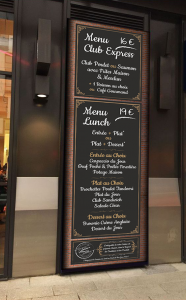 Menu 16 €
Club Express
Club Poulet ou Saumon
avec Frites Maison
& Mesclun
+ 1 Boisson au choix
ou Café Gourmand
Menu 19 €
Lunch
Entrée + Plat
ou
Plat + Dessert
Entrée au Choix
Carpaccio du Jour
Oeuf Poché et Poêlée Forestière
Potage Maison
Plat au Choix
Brochettes Poulet Tandoori
Plat du Jour
Club Sandwich
Salade César
Dessert au Choix
Brownie Crème Anglaise
Dessert du Jour